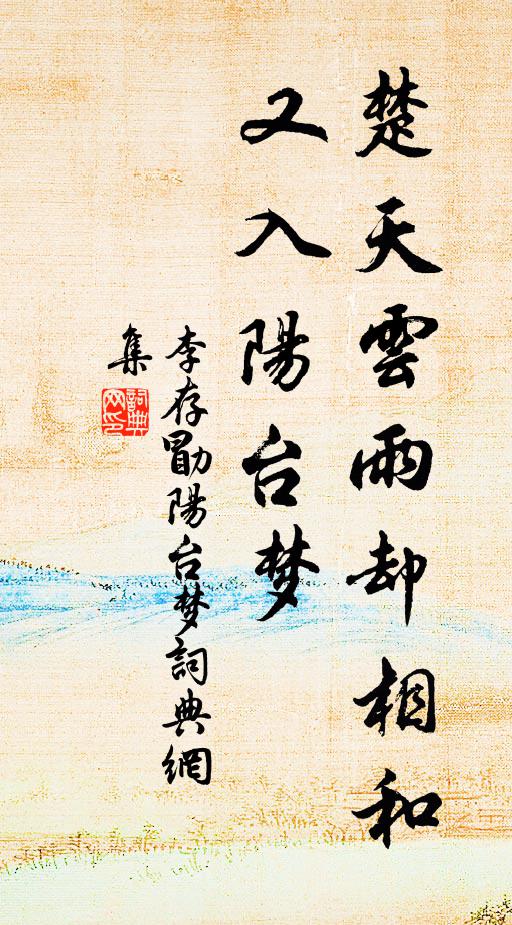 楚天雲雨却相和
又入陽台梦
李存勖陽台梦詞典網
集
詞典
网印